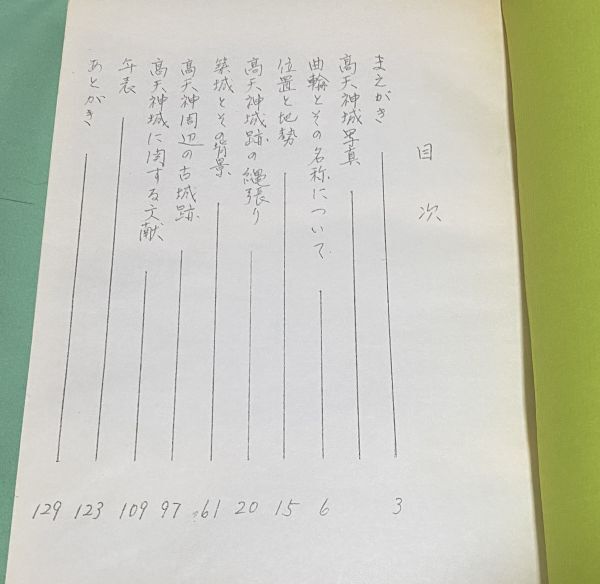 目次
まえがき 3
高天神城写真
曲輪とその名称について 6
位置と地勢 15
高天神城跡の縄張り 20
築城とその背景 61
高天神周辺の古城跡 97
高天神城に関する文献 109
年表 123
あとがき 129